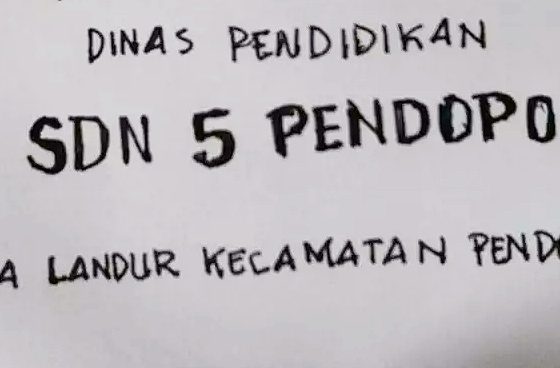 DINAS PENDIDIKAN
SDN 5 PENDOPO
A LANDUR KECAMATAN PENDO